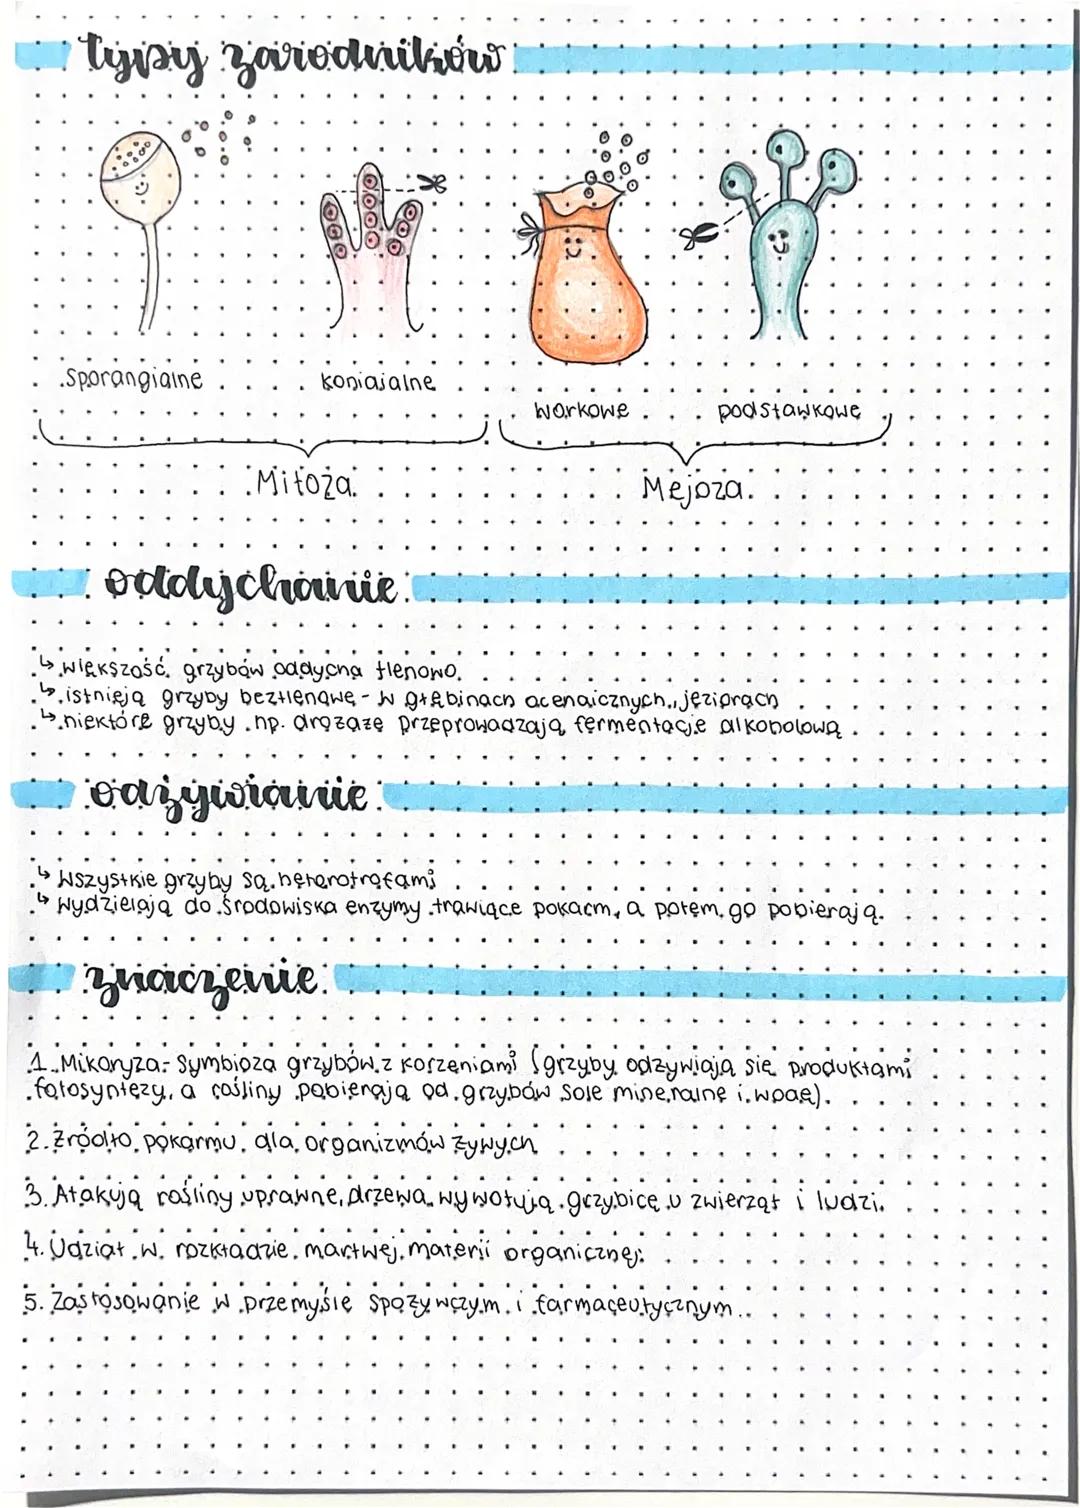 typy zarodników
sporangialne
konidialne
workowe
podstawkowe
Mitoza
Mejoza
oddychanie
↳ większość grzybów oddycha tlenowo
↳ istnieją grzyby beztlenowe - w głębinach oceanicznych, jeziorach
↳ niektóre grzyby np. drożdże przeprowadzają fermentacje alkoholową
odżywianie
↳ wszystkie grzyby są heterotrofami
↳ wydzielają do środowiska enzymy trawiące pokarm, a potem go pobierają.
znaczenie
1. Mikoryza - symbioza grzybów z korzeniami (grzyby odżywiają się produktami
fotosyntezy, a rośliny pobierają od grzybów sole mineralne i wodę).
2. źródło pokarmu dla organizmów żywych
3. Atakują rośliny uprawne, drzewa wywołują grzybicę u zwierząt i ludzi.
4. Udział w rozkładzie martwej materii organicznej
5. Zastosowanie w przemyśle spożywczym i farmaceutycznym.